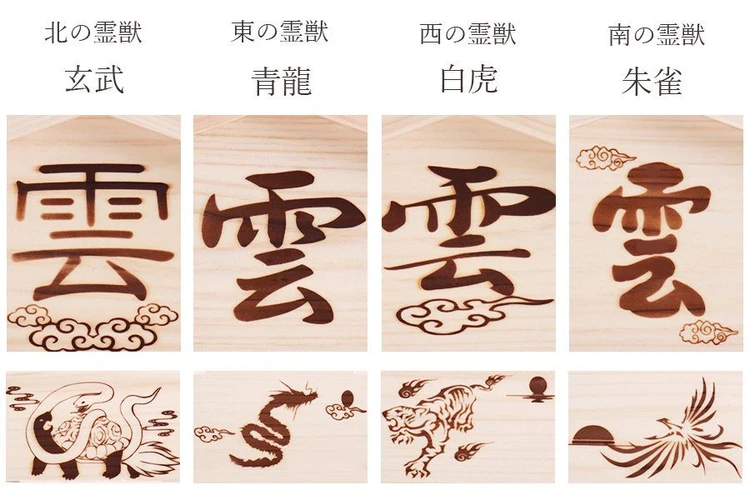 北の霊獣
玄武
東の霊獣
青龍
西の霊獣
白虎
南の霊獣
朱雀
雲
雲
雲
雲